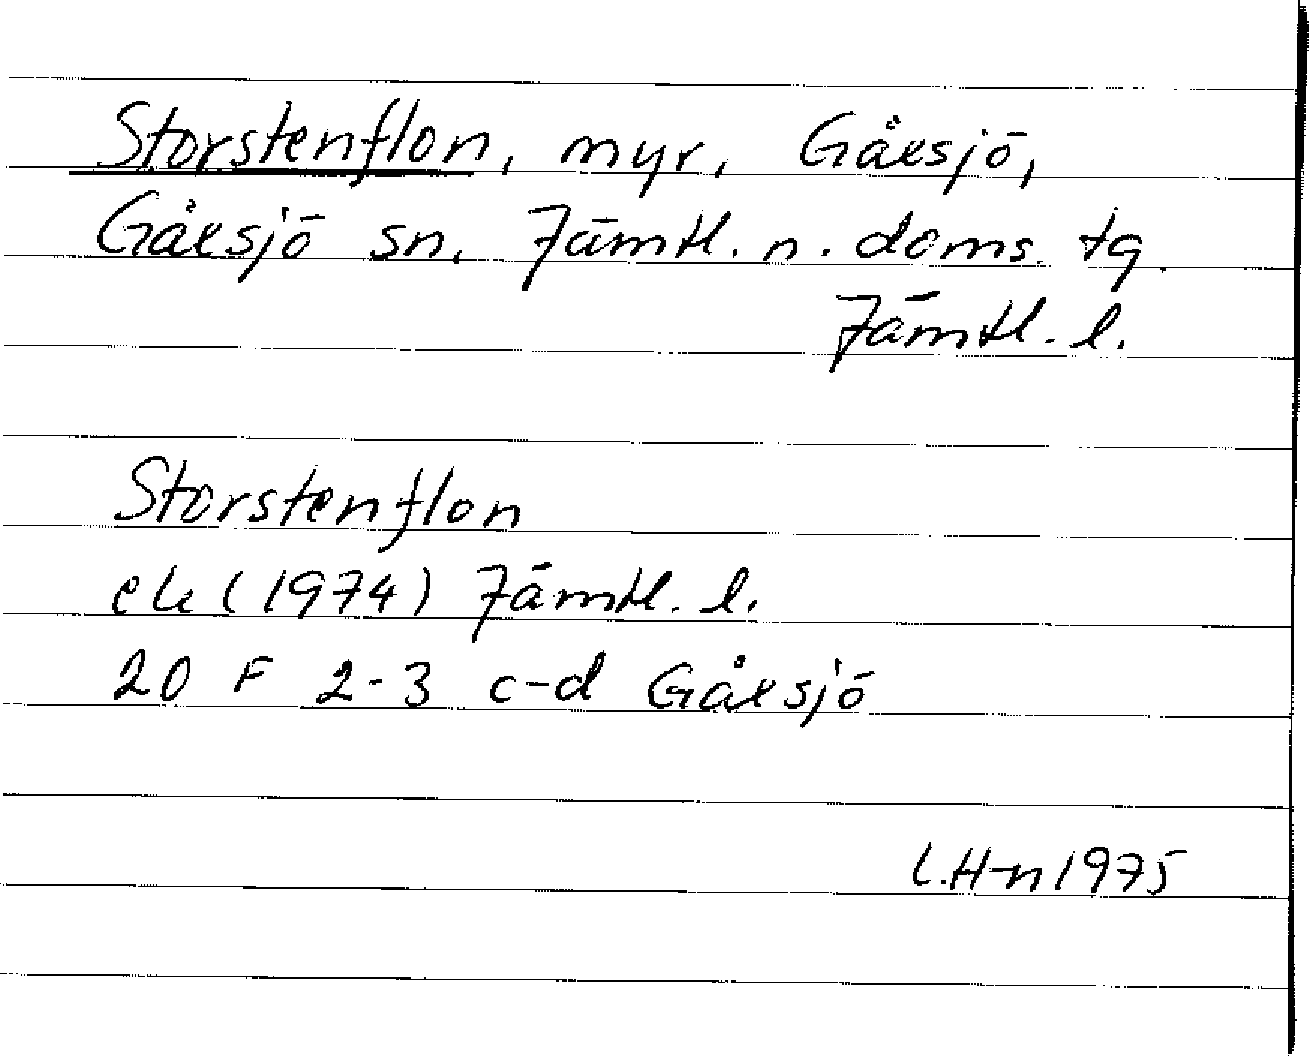 Storstenflon, myr, Gåxsjö,
Gåxsjö sn, Jämtl. n. doms. tg.
Jämtl. l.
Storstenflon
ek (1974) Jämtl. l.
20 F 2-3 c-d Gåxsjö
L.H-n 1975